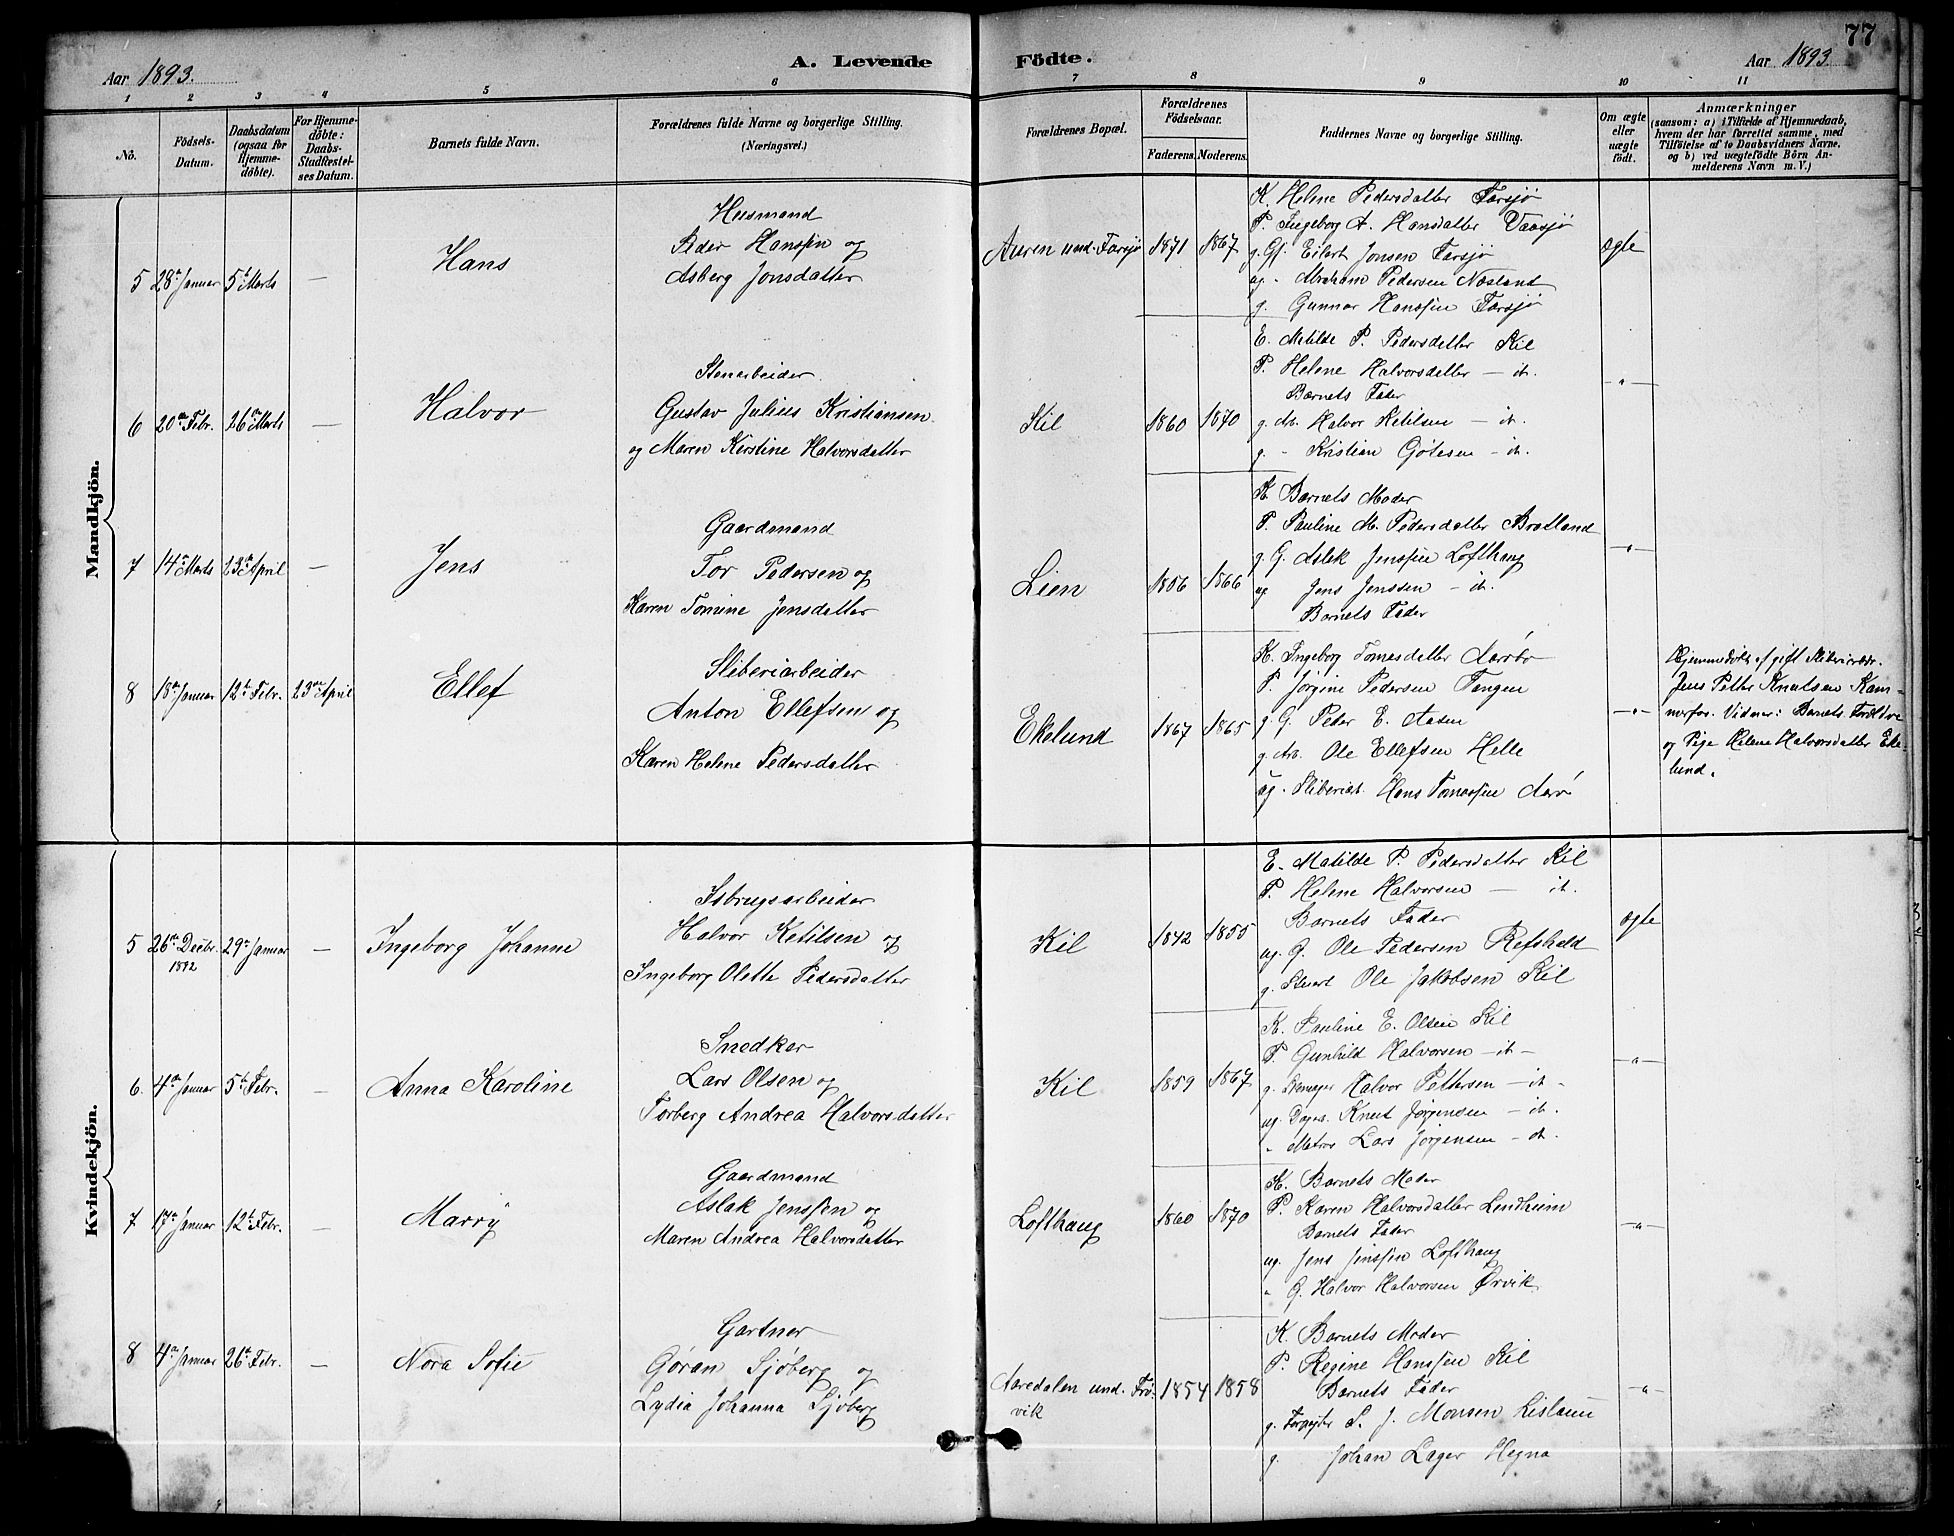 77
Aar 1893.
A. Levende
Födte.
Aar 1893
1 2 3 4 5 6 7 8 9 10 11
No.
Födsels-
Datum.
Daabsdatum
(ogsaa for
Hjemme-
döbte).
For Hjemme-
döbte:
Daabs-
Stadfæstel-
ses Datum.
Barnets fulde Navn.
Forældrenes fulde Navne og borgerlige Stilling.
(Næringsvei.)
Forældrenes Bopæl.
Forældrenes
Födselsaar.
Faderens. Moderens.
Faddernes Navne og borgerlige Stilling.
Om ægte
eller
uægte
födt.
Anmærkninger
(saasom: a) i Tilfælde af Hjemmedaab,
hvem der har forrettet samme, med
Tilföielse af to Daabsvidners Navne,
og b) ved uægtefödte Börn An-
melderens Navn m. V.)
Mandkjön.
5 28de Januar 5te Marts —
Hans
Husmand
Peder Hanssen og
Asberg Jonsdatter
Auren und. Farsjø 1871 1867
K. Helene Pedersdatter Farsjø
P. Ingeborg A. Hansdatter Vaasjø
g. Gf. Eilert Jonsen Farsjø
ug. - Abraham Pedersen
g. Gunnar Hanssen Farsjø
ægte
6 20de Febr. 26de Marts —
Halvor
Stenarbeider
Gustav Julius Kristiansen
og Maren Kirstine Halvorsdatter
Kil 1860 1870
E. Matilde P. Pedersdatter Kil
P. Helene Halvorsdatter — it.
Barnets Fader
g. Arb. Halvor Ketilsen — it.
g. - Kristian Gjøtesen — it.
— " —
7 14de Marts 23de April —
Jens
Gaardmand
Tor Pedersen og
Karen Tomine Jensdatter
Lien 1856 1866
K. Barnets Moder
P. Pauline M. Pedersdatter Bratland
g. G. Aslak Jenssen Lofthaug
ug Jens Jenssen — it.
Barnets Fader
— " —
8 18de Januar 12te Febr. 23de April
Ellef
Sliberiarbeider
Anton Ellefsen og
Karen Helene Pedersdatter
Ekelund 1867 1865
K. Ingeborg Tomesdatter Aarøbø
P. Jørgine Pedersen Tangen
g. G. Peder E. Aasen
g. Arb. Ole Ellefsen Helle
ug - Sliberiarb. Hans Tomassen Aarø
— " —
Hjemmedøbt af gift Sliberiarb.
Jens Petter Knutsen Kam-
merfos. Vidner: Barnets Forældre
og Pige Helene Halvorsdatter Eke-
lund.
Kvindekjön.
5 26de Decbr. 1892 29de Januar —
Ingeborg Johanne
Isbrugsarbeider
Halvor Ketilsen og
Ingeborg Olette Pedersdatter
Kil 1842 1855
E. Matilde P. Pedersdatter Kil
P. Helene Halvorsen — it.
Barnets Fader
ug. G. Ole Pedersen
g. Stuert Ole Jakobsen Kil
ægte
6. 4de Januar 5te Febr. —
Anna Karoline
Snedker
Lars Olsen og
Torberg Andrea Halvorsdatter
Kil 1859 1867
K. Pauline E. Olsen Kil
P. Gunhild Halvorsen — it —
g. Halvor Pettersen — it -
ug. Knut Jørgensen — it.
" Matros Lars Jørgensen — it.
— " —
7 17de Januar 12te Febr. —
Marry
Gaardmand
Aslak Jenssen og
Maren Andrea Halvorsdatter
Lofthaug 1860 1870
K. Barnets Moder
P. Karen Halvorsdatter Lindheim
Barnets Fader
ug. Jens Jenssen Lofthaug
" G. Halvor Halvorsen Ørvik
— " —
8 4de Januar 26de Febr. —
Nora Sofie
Gartner
Gøran Sjøberg og
Lydia Johanna Sjøberg
Aaredalen und. Frø-
vik 1854 1858
K. Barnets Moder
P. Regine Hanssen Kil
Barnets Fader
g. Forpagter S. J. Monsen
g. Johan Lager Hegna
— " —